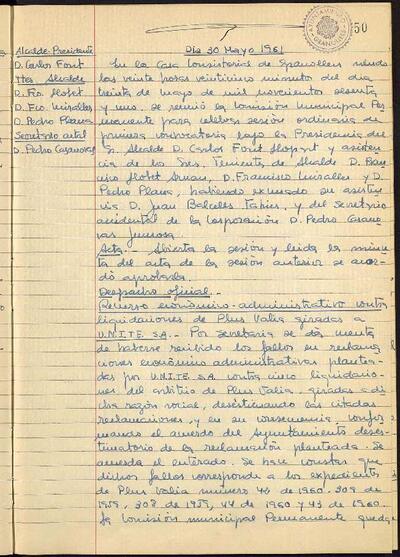 50
AYUNTAMIENTO GRANOLLERS
Dia 30 Mayo 1961
Alcalde-Presidente
D. Carlos Font
Ttes Alcalde
D. Fco. Llobet
D. Fco. Miralles
D. Pedro Plana
Secretario actal
D. Pedro Casanovas
En la Casa Consistorial de Granollers siendo
las veinte horas veinticinco minutos del dia
treinta de mayo de mil novecientos sesenta
y uno. se reunió la Comisión Municipal Per
manente para celebrar sesión ordinaria de
primera convocatoria bajo la Presidencia del
Sr. Alcalde D. Carlos Font Llopart y asisten
cia de los Sres. Tenientes de Alcalde D. Fran
cisco Llobet Arnan, D. Francisco Miralles y D.
Pedro Plana, habiendo excusado su asisten
cia D. Juan Balcells y del Secretario
accidental de la Corporación D. Pedro Casano
vas
Acta.- Abierta la sesión y leida la minu
ta del acta de la sesión anterior se acor
dó aprobarla.
Despacho oficial.
Recurso económico-administrativo contra
liquidaciones de Plus Valia giradas a
U.N.I.T.E. S.A.- Por Secretaria se dá cuenta
de haberse recibido los fallos en reclama
ciones económico administrativas plantea
das por U.N.I.T.E. S.A. contra cinco liquidacio
nes del arbitrio de Plus Valia, giradas a di
cha razón social, desestimando las citadas
reclamaciones, y en su consecuencia, confir
mando el acuerdo del Ayuntamiento deses
timatorio de la reclamación planteada. Se
acuerda el enterado. Se hace constar que
dichos fallos corresponde a los expedientes
de Plus Valia número 45 de 1960. 309 de
1959, 308 de 1959, 44 de 1960 y 43 de 1960.
La Comisión municipal Permanente queda